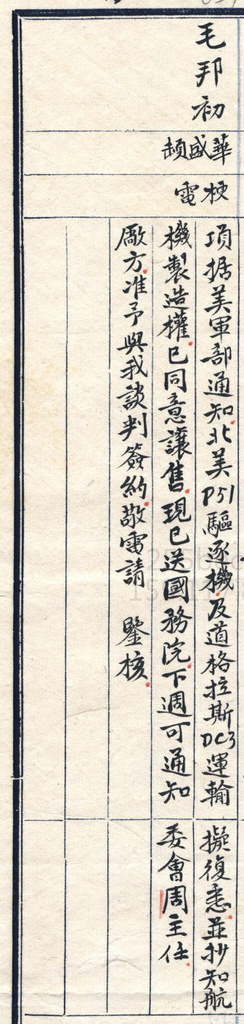 毛邦初
華盛頓
梗電
項据美軍部通知北美P51驅逐機及道格拉斯DC3運輸
機製造權已同意讓售現已送國務院下週可通知
廠方准予與我談判簽約敬電請 鑒核
擬復悉並抄知航
委會周主任